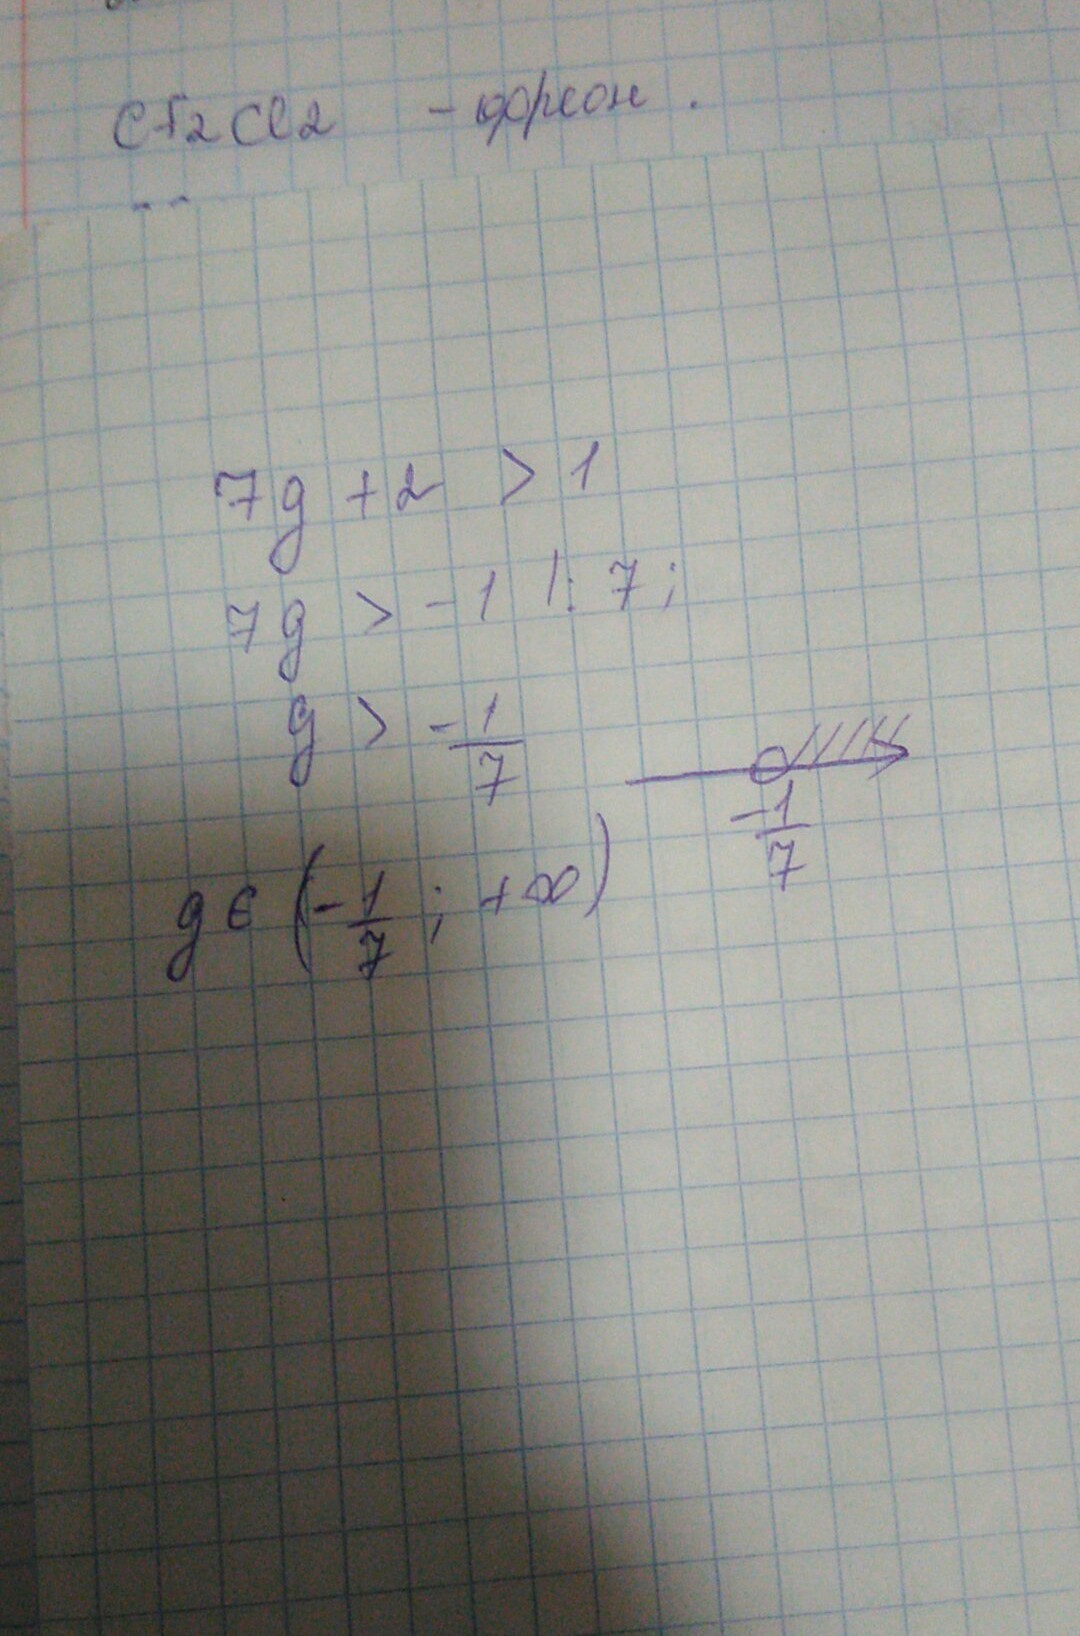 CF2Cl2 - фреон.
7g + 2 > 1
7g > -1 |: 7;
g > -1/7
-1/7
g ∈ (-1/7; +∞)